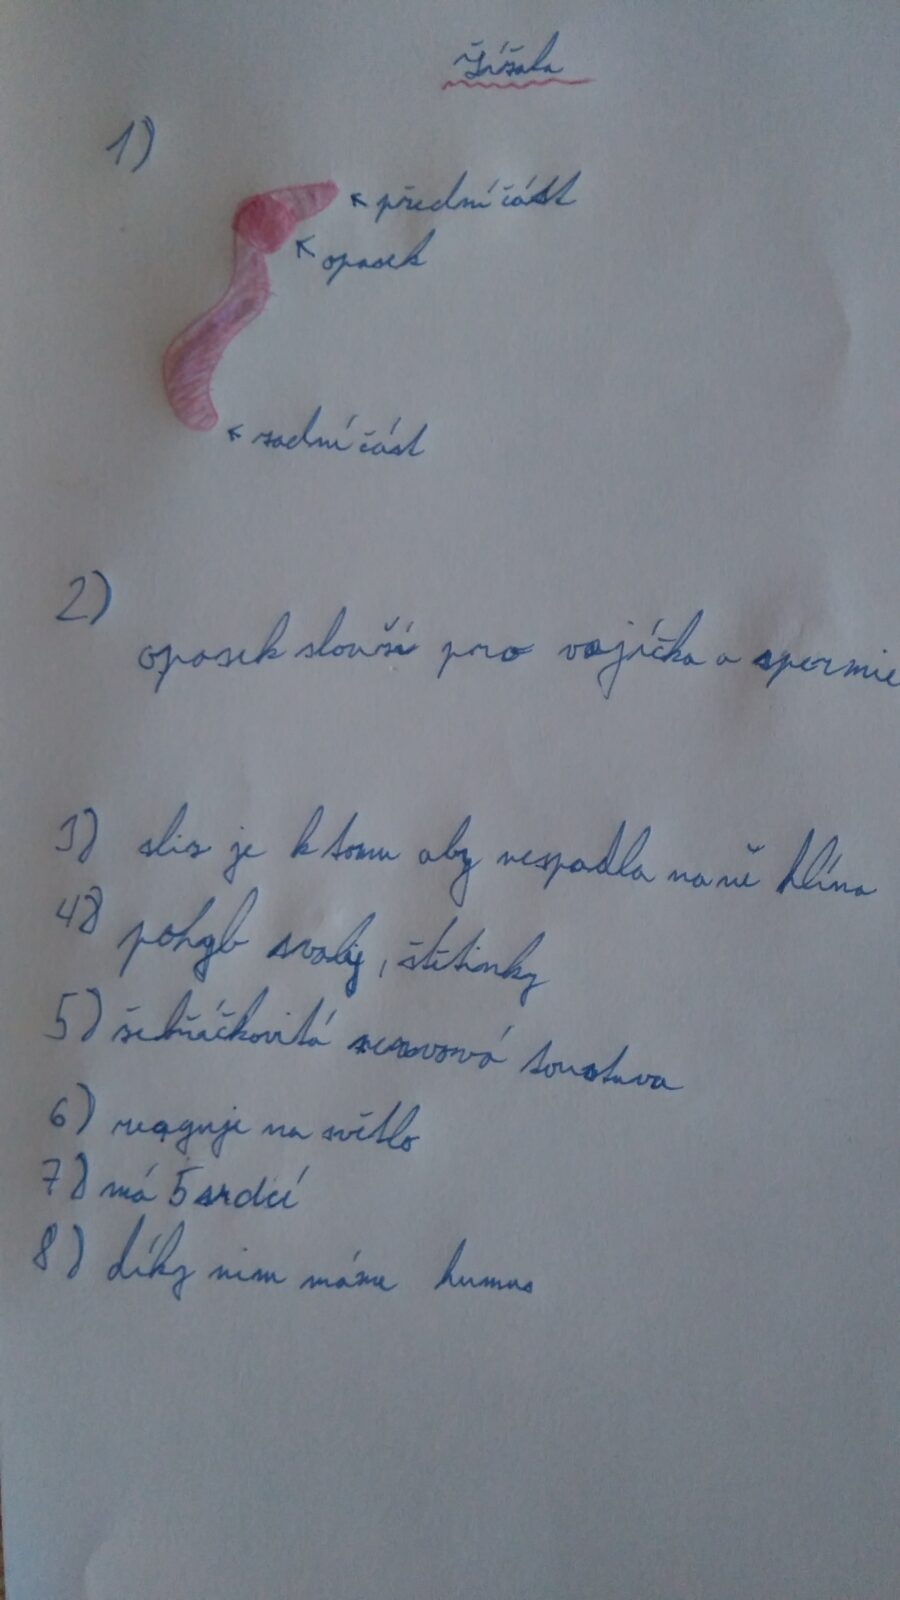 Žížala
1)
přední část
opasek
zadní část
2)
opasek slouží pro vajíčka a spermie
3) sliz je k tomu aby nespadla na ně hlína
4) pohyb svaly, štětinky
5) žebříčkovitá nervová soustava
6) reaguje na světlo
7) má 5 srdcí
8) díky nim máme humus